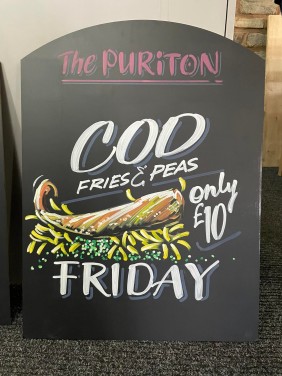 The PURiTON
COD
FRIES & PEAS
only
£10
FRIDAY